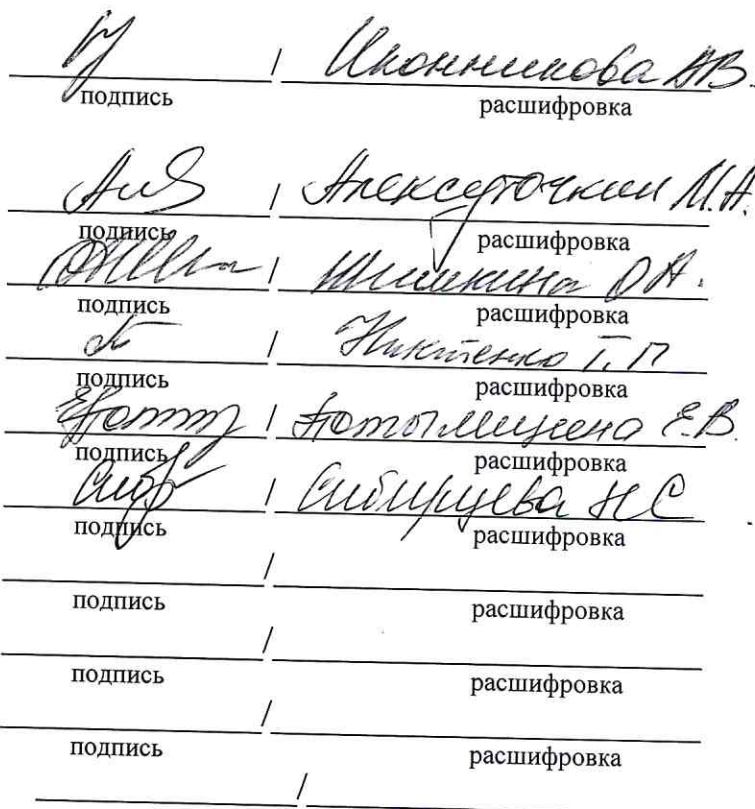 / Иконникова АВ.
подпись расшифровка
/ М.А.
подпись расшифровка
/ Шишкина О А.
подпись расшифровка
/ Никитенко Т. П
подпись расшифровка
/ Е.В.
подпись расшифровка
/ Сибирцева НС
подпись расшифровка
/
подпись расшифровка
/
подпись расшифровка
/
подпись расшифровка
/